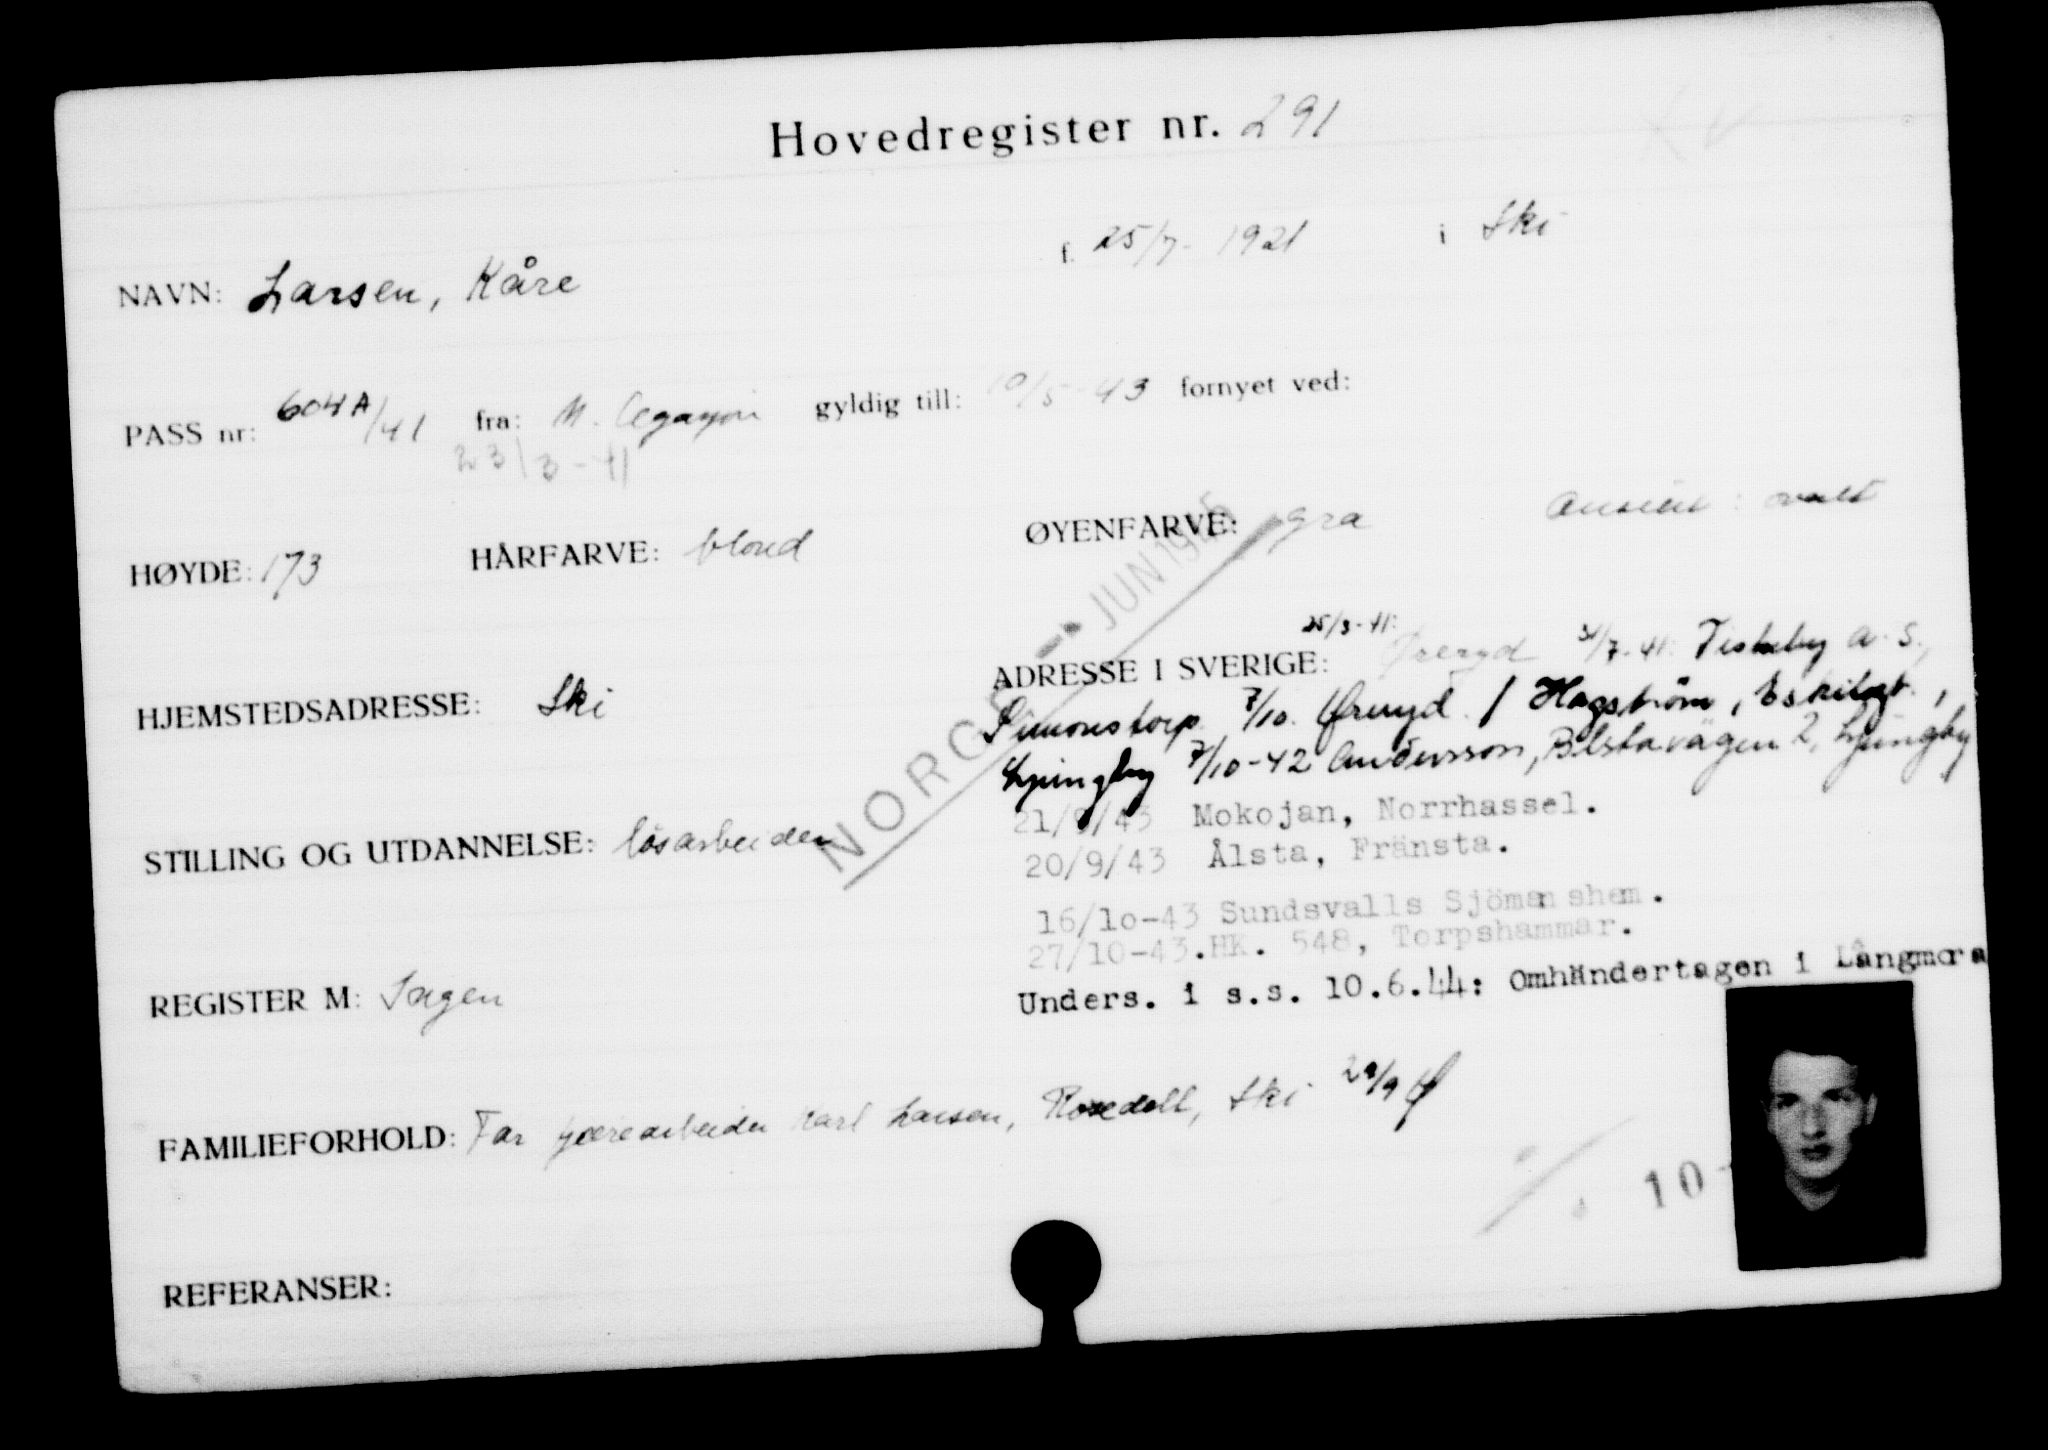 Hovedregister nr. 291
NAVN: Larsen, Kåre f. 25/7- 1921 i Ski
PASS nr: 604A/41 fra: N. Legasjon gyldig till: 10/5-43 fornyet ved:
23/3-41
HØYDE: 173 HÅRFARVE: blond ØYENFARVE: grå Ansikt: ovalt
JUN 1945
NORGE
HJEMSTEDSADRESSE: Ski
ADRESSE I SVERIGE: 25/3-41: Øreryd 31/7-41: Fiskeby A.S.,
Simonstorp 7/10. Øreryd / Hagström, Eskilsgt.,
Ljungby 7/10-42 Andersson, Bolstavägen 2, Ljungby
21/9/43 Mokojan, Norrhassel.
20/9/43 Ålsta, Fränsta.
16/10-43 Sundsvalls Sjömanshem.
27/10-43. HK. 548, Torpshammar.
Unders. i s.s. 10.6.44: Omhändertagen i Långmora
STILLING OG UTDANNELSE: løsarbeider
REGISTER M: Ingen
FAMILIEFORHOLD: Far Karl Larsen, Rosedal, Ski 29/9 Ø
10-
REFERANSER: